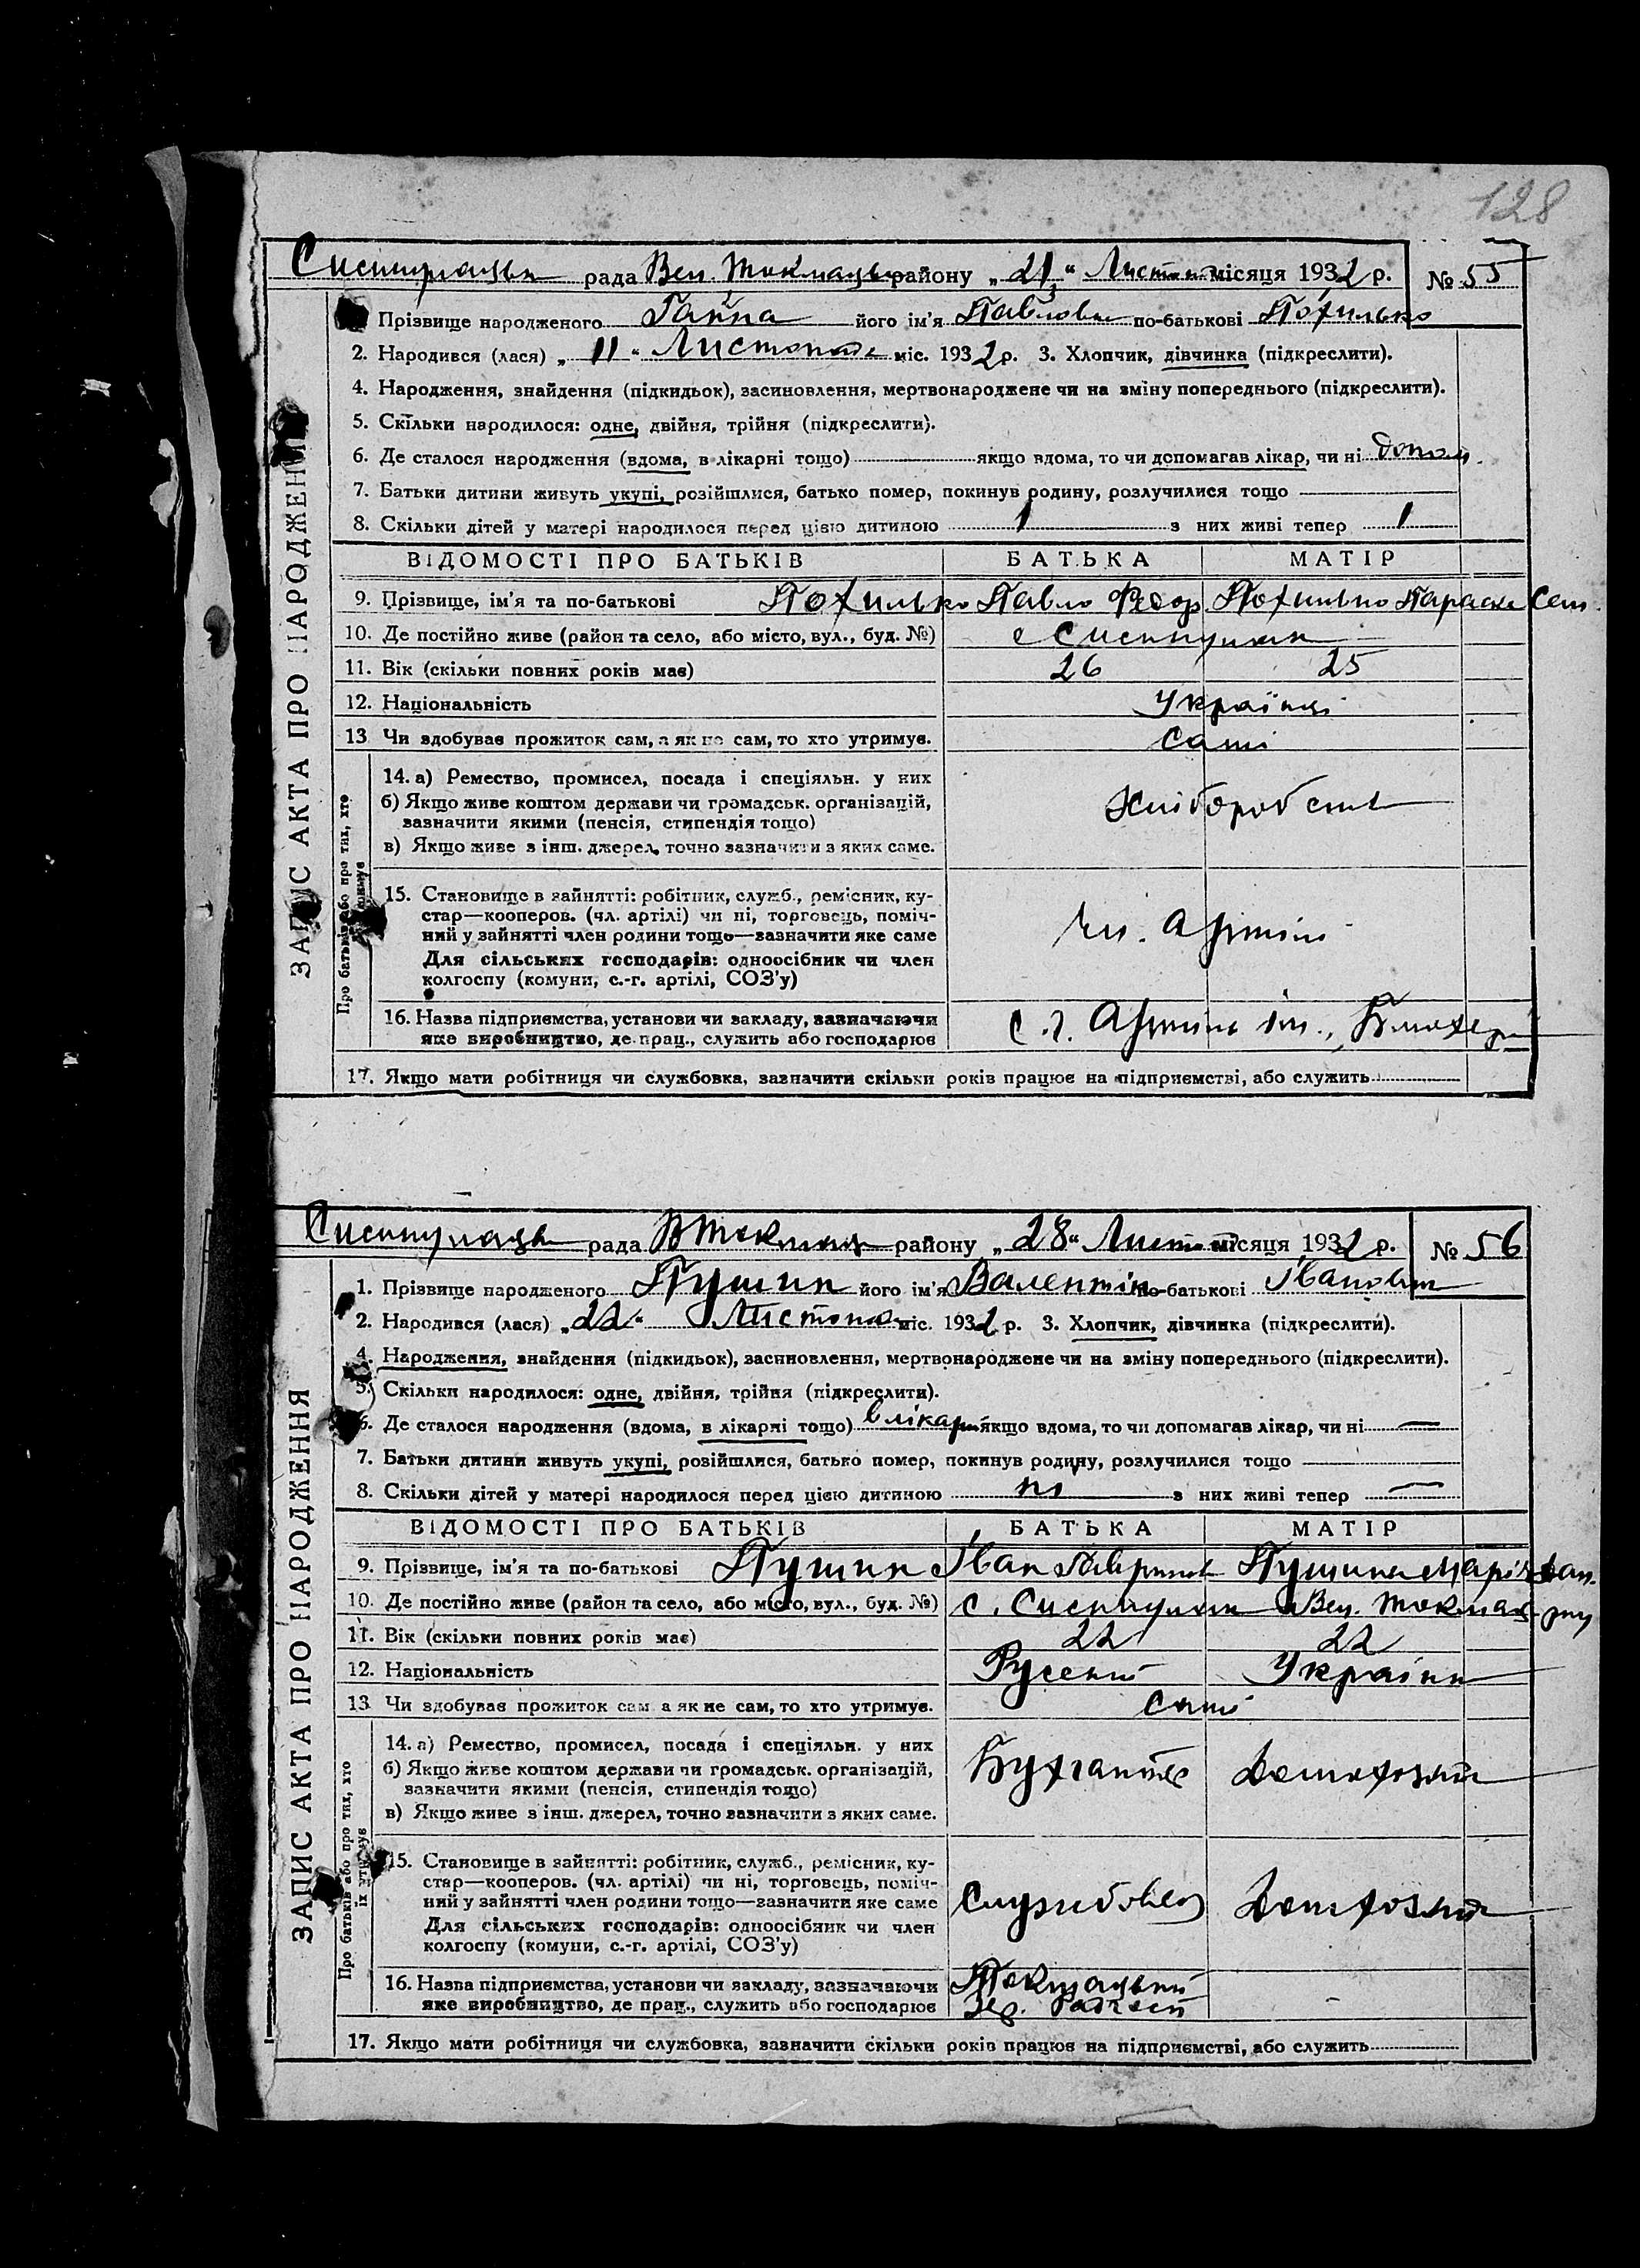 128
рада Вел. Токмацьк району „21“ Листоп місяця 1932 р. № 55
Прізвище народженого Ганна його ім'я Павловна по-батькові Похилько
2. Народився (лася) „11“ Листопада міс. 1932 р. 3. Хлопчик, дівчинка (підкреслити).
4. Народження, знайдення (підкидьок), засиновлення, мертвонароджене чи на зміну попереднього (підкреслити).
5. Скільки народилося: одне, двійня, трійня (підкреслити).
6. Де сталося народження (вдома, в лікарні тощо) якщо вдома, то чи допомагав лікар, чи ні
7. Батьки дитини живуть укупі, розійшлися, батько помер, покинув родину, розлучилися тощо
8. Скільки дітей у матері народилося перед цією дитиною 1 з них живі тепер 1
ВІДОМОСТІ ПРО БАТЬКІВ БАТЬКА МАТІР
9. Прізвище, ім'я та по-батькові Похилько Павло Федор Похилько Параска Сем.
10. Де постійно живе (район та село, або місто, вул., буд. №) с
11. Вік (скільки повних років має) 26 25
12. Національність Українці
13 Чи здобуває прожиток сам, а як не сам, то хто утримує. Самі
14. а) Ремество, промисел, посада і спеціяльн. у них
б) Якщо живе коштом держави чи громадськ. організацій,
зазначити якими (пенсія, стипендія тощо) Хліборобств
в) Якщо живе з інш. джерел, точно зазначити з яких саме.
15. Становище в зайнятті: робітник, служб., ремісник, ку-
стар—кооперов. (чл. артілі) чи ні, торговець, поміч-
ний у зайнятті член родини тощо—зазначити яке саме чл. Артілі
Для сільських господарів: одноосібник чи член
колгоспу (комуни, с.-г. артілі, СОЗ'у)
16. Назва підприємства, установи чи закладу, зазначаючи С.г. Артіль ім.
яке виробництво, де прац., служить або господарює
17. Якщо мати робітниця чи службовка, зазначити скільки років працює на підприємстві, або служить
ЗАПИС АКТА ПРО НАРОДЖЕННЯ
Про батьків або про тих, хто
рада В Токмацьк району „28“ Листоп місяця 1932 р. № 56
1. Прізвище народженого Пушин його ім'я Валентін по-батькові Іванович
2. Народився (лася) „22“ Листопада міс. 1932 р. 3. Хлопчик, дівчинка (підкреслити).
4. Народження, знайдення (підкидьок), засиновлення, мертвонароджене чи на зміну попереднього (підкреслити).
5. Скільки народилося: одне, двійня, трійня (підкреслити).
6. Де сталося народження (вдома, в лікарні тощо) в лікарні якщо вдома, то чи допомагав лікар, чи ні —
7. Батьки дитини живуть укупі, розійшлися, батько помер, покинув родину, розлучилися тощо
8. Скільки дітей у матері народилося перед цією дитиною ні з них живі тепер —
ВІДОМОСТІ ПРО БАТЬКІВ БАТЬКА МАТІР
9. Прізвище, ім'я та по-батькові Пушин Іван Гаврилов Пушина Марія
10. Де постійно живе (район та село, або місто, вул., буд. №) с. Вел. Токмац р-ну
11. Вік (скільки повних років має) 22 22
12. Національність Руский Україн
13 Чи здобуває прожиток сам а як не сам, то хто утримує. Самі
14. а) Ремество, промисел, посада і спеціяльн. у них
б) Якщо живе коштом держави чи громадськ. організацій, Бухгалтер Домохозяйк
зазначити якими (пенсія, стипендія тощо)
в) Якщо живе з інш. джерел, точно зазначити з яких саме.
15. Становище в зайнятті: робітник, служб., ремісник, ку-
стар—кооперов. (чл. артілі) чи ні, торговець, поміч-
ний у зайнятті член родини тощо—зазначити яке саме Службовец Домохозяйк
Для сільських господарів: одноосібник чи член
колгоспу (комуни, с.-г. артілі, СОЗ'у)
16. Назва підприємства, установи чи закладу, зазначаючи Токмацький
яке виробництво, де прац., служить або господарює
17. Якщо мати робітниця чи службовка, зазначити скільки років працює на підприємстві, або служить
ЗАПИС АКТА ПРО НАРОДЖЕННЯ
Про батьків або про тих, хто
їх утримує